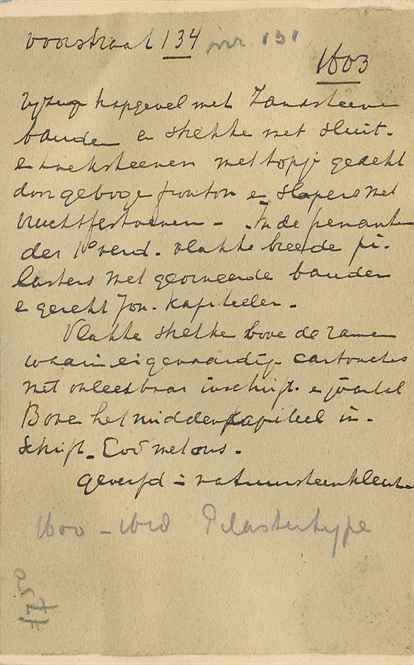 voorstraat 134 nr. 131
1603
trapgevel met Zandsteene
banden e strekke met sluit-
e hoeksteenen met topje gedekt
door geboge fronton e slapers met
vruchtfestoenen - In de penanten
der 1e verd. vlakke breede pi-
lasters met georneerde banden
e gerekt Jon. Kapiteelen.
Vlakke strekke bove de ramen
waarin eigenaardige cartouches
met onleesbaar inschrift e jaartal
Bove het middenkapiteel in-
schrift. God met ons.
geverfd in natuursteenkleur
1600 - 1610 Pilastertype